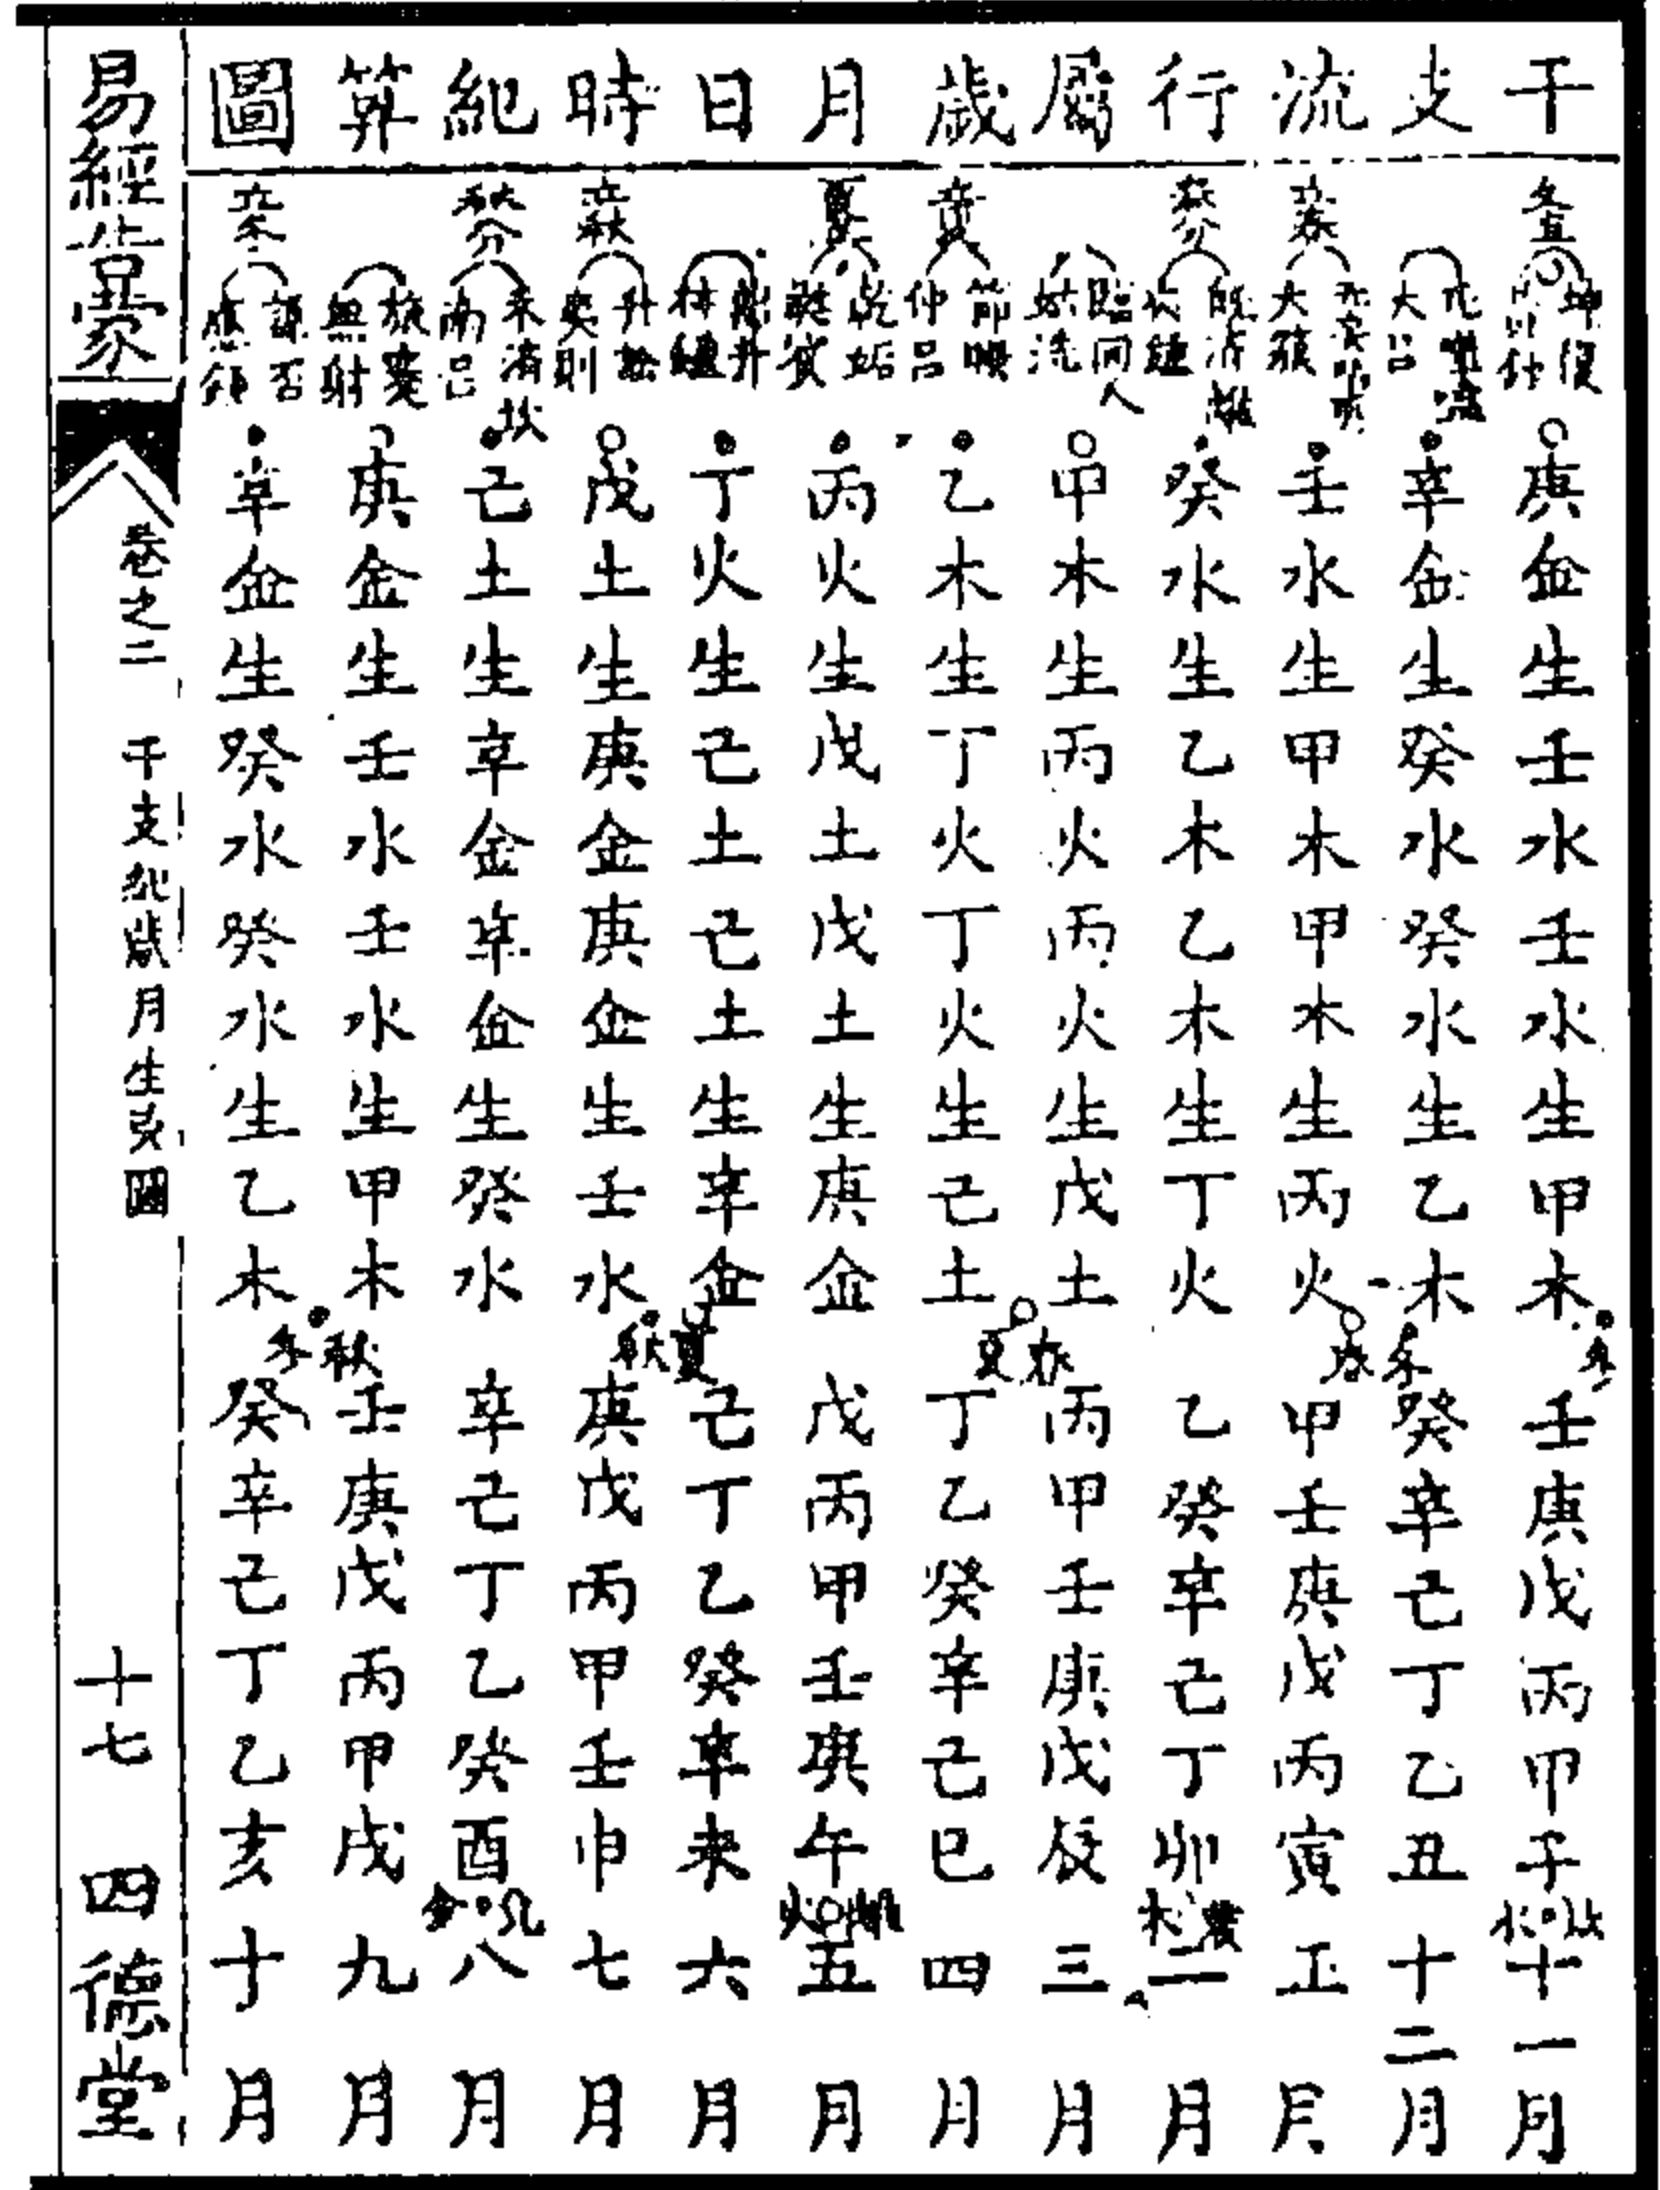 干支流行屬歲月日時紀筭圖
冬至
坤復
庚金生壬水壬水生甲木
冬
壬庚戊丙甲子
水
十一月
大呂
辛金生癸水癸水生乙木
冬
癸辛己丁乙丑十二月
立春
大簇
壬水生甲木甲木生丙火
春
甲壬庚戊丙寅正月
春分
既濟離
夾鍾
癸水生乙木乙木生丁火
乙癸辛己丁卯
震
木
二月
臨同人
姑洗
甲木生丙火丙火生戊土
春
丙甲壬庚戊辰三月
立夏
節
仲呂
乙木生丁火丁火生己土
夏
丁乙癸辛己巳四月
夏至
乾姤
蕤賓
丙火生戊土戊土生庚金
戊丙甲壬庚午
離
火
五月
井
林鍾
丁火生己土己土生辛金
夏
己丁乙癸辛未六月
立秋
升訟
夷則
戊土生庚金庚金生壬水
秋
庚戊丙甲壬申七月
秋分
未濟坎
南呂
己土生辛金辛金生癸水
辛己丁乙癸酉
兌
金
八月
旅蹇
無射
庚金生壬水壬水生甲木
秋
壬庚戊丙甲戌九月
立冬
謙否
應鍾
辛金生癸水癸水生乙木
冬
癸辛己丁乙亥十月
易經告蒙
卷之二
干支紀歲月生肖圖
十七
四德堂